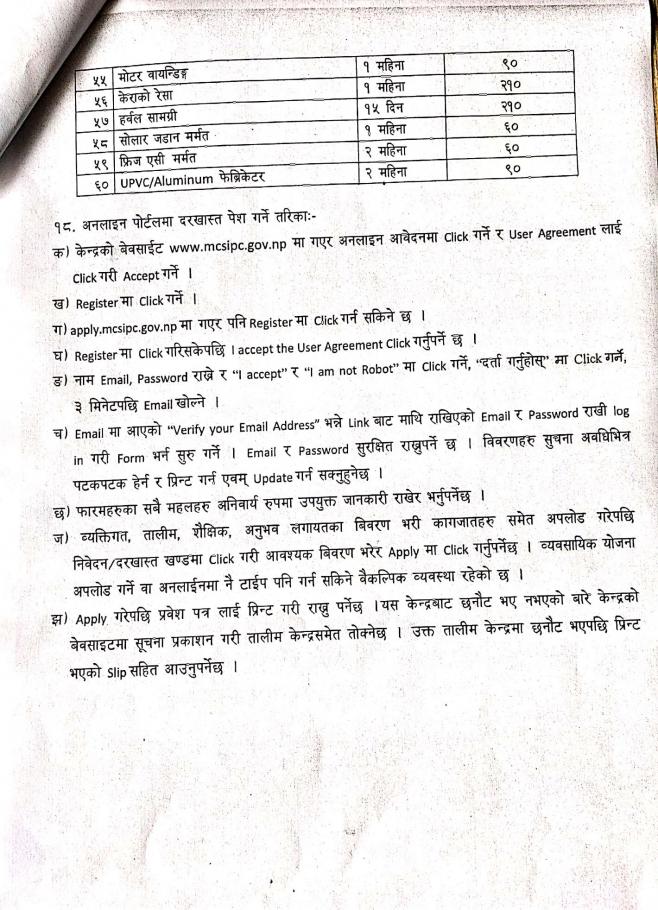 ५५ मोटर वायन्डिङ्ग १ महिना ९०
५६ केराको रेसा १ महिना २१०
५७ हर्वल सामग्री १५ दिन २१०
५८ सोलार जडान मर्मत १ महिना ६०
५९ फ्रिज एसी मर्मत २ महिना ६०
६० UPVC/Aluminum फेब्रिकेटर २ महिना ९०
१८. अनलाइन पोर्टलमा दरखास्त पेश गर्ने तरिकाः-
क) केन्द्रको बेवसाईट www.mcsipc.gov.np मा गएर अनलाइन आबेदनमा Click गर्ने र User Agreement लाई
Click गरी Accept गर्ने ।
ख) Register मा Click गर्ने ।
ग) apply.mcsipc.gov.np मा गएर पनि Register मा Click गर्न सकिने छ ।
घ) Register मा Click गरिसकेपछि I accept the User Agreement Click गर्नुपर्ने छ ।
ङ) नाम Email, Password राख्ने र “I accept” र “I am not Robot” मा Click गर्ने, “दर्ता गर्नुहोस्” मा Click गर्ने,
३ मिनेटपछि Email खोल्ने ।
च) Email मा आएको “Verify your Email Address” भन्ने Link बाट माथि राखिएको Email र Password राखी log
in गरी Form भर्न सुरु गर्ने । Email र Password सुरक्षित राख्नुपर्ने छ । विवरणहरु सुचना अवधिभित्र
पटकपटक हेर्न र प्रिन्ट गर्न एवम् Update गर्न सक्नुहुनेछ ।
छ) फारमहरुका सबै महलहरु अनिवार्य रुपमा उपयुक्त जानकारी राखेर भर्नुपर्नेछ ।
ज) व्यक्तिगत, तालीम, शैक्षिक, अनुभव लगायतका बिवरण भरी कागजातहरु समेत अपलोड गरेपछि
निवेदन/दरखास्त खण्डमा Click गरी आवश्यक बिवरण भरेर Apply मा Click गर्नुपर्नेछ । व्यवसायिक योजना
अपलोड गर्ने वा अनलाईनमा नै टाईप पनि गर्न सकिने वैकल्पिक व्यवस्था रहेको छ ।
झ) Apply गरेपछि प्रवेश पत्र लाई प्रिन्ट गरी राख्नु पर्नेछ ।यस केन्द्रबाट छनौट भए नभएको बारे केन्द्रको
बेवसाइटमा सूचना प्रकाशन गरी तालीम केन्द्रसमेत तोक्नेछ । उक्त तालीम केन्द्रमा छनौट भएपछि प्रिन्ट
भएको Slip सहित आउनुपर्नेछ ।